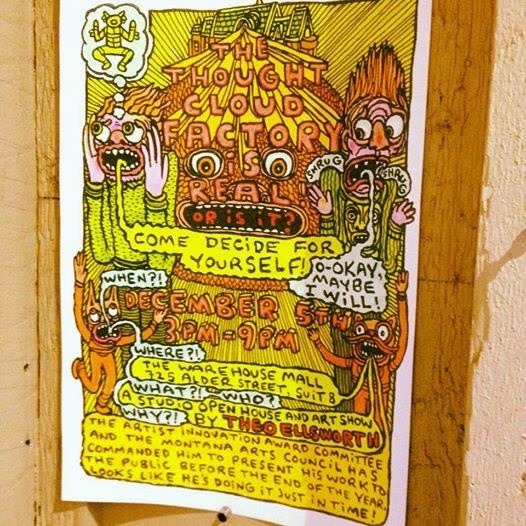 THE
THOUGHT
CLOUD
FACTORY
iS
REAL!
OR iS iT?
SHRUG
SHRUG
COME DECIDE FOR
YOURSELF!
O-OKAY,
MAYBE
I WiLL!
WHEN?!
DECEMBER 5TH
3PM-9PM
WHERE?!
THE WAREHOUSE MALL
325 ALDER STREET, SUiT 8
WHAT?! WHO?
A STUDiO OPEN HOUSE AND ART SHOW
WHY?! BY THEO ELLSWORTH
THE ARTiST iNNOVATiON AWARD COMMiTTEE
AND THE MONTANA ARTS COUNCiL HAS
COMMANDED HiM TO PRESENT HiS WORK TO
THE PUBLiC BEFORE THE END OF THE YEAR.
LOOKS LiKE HE'S DOiNG iT JUST iN TiME!